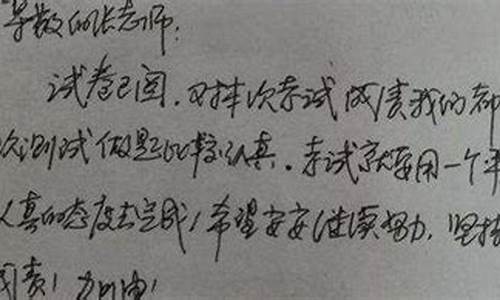 尊敬的张老师:
试卷已阅.对本次考试成绩我们都
次测试做题比较认真.考试就要用一个平
认真的态度去完成!希望安安继续努力.坚持
加油!